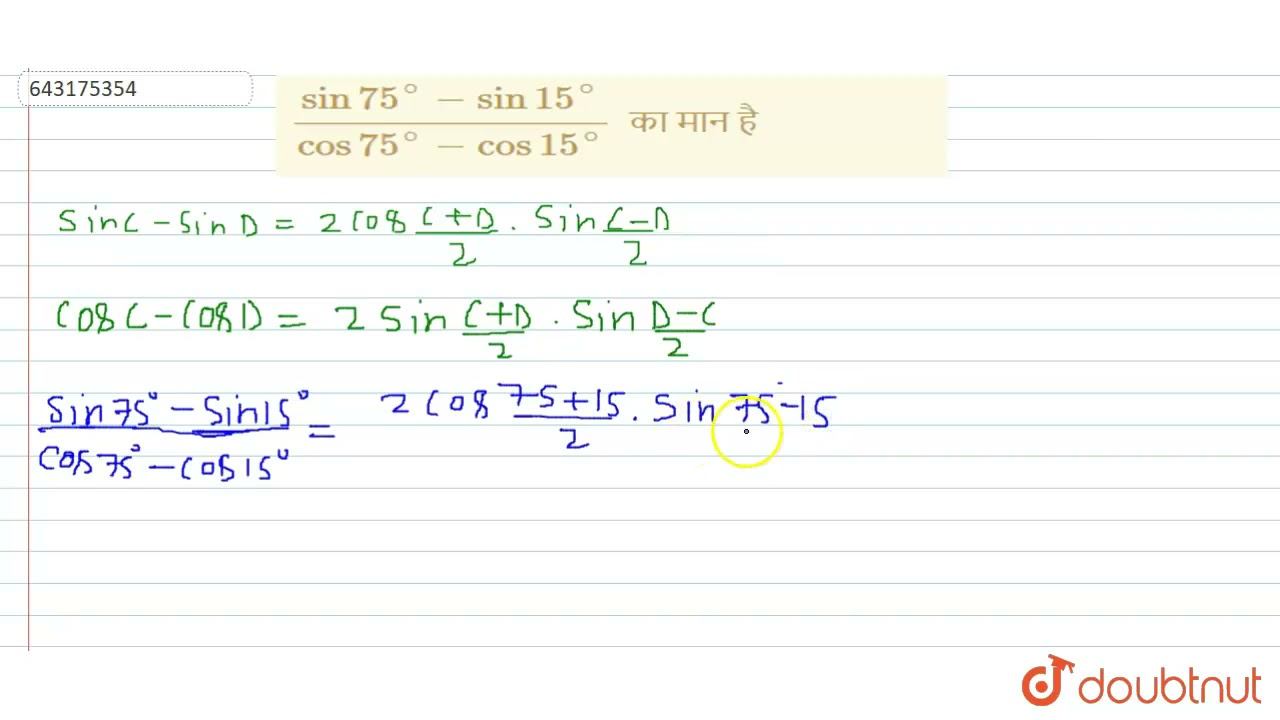 643175354
sin 75° − sin 15°
cos 75° − cos 15°
का मान है
SinC − Sin D = 2 Cos C+D/2 . Sin C−D/2
Cos C − Cos D = 2 Sin C+D/2 . Sin D−C/2
Sin75° − Sin15° / Cos 75° − Cos 15° = 2 Cos 75+15/2 . Sin 75−15
doubtnut